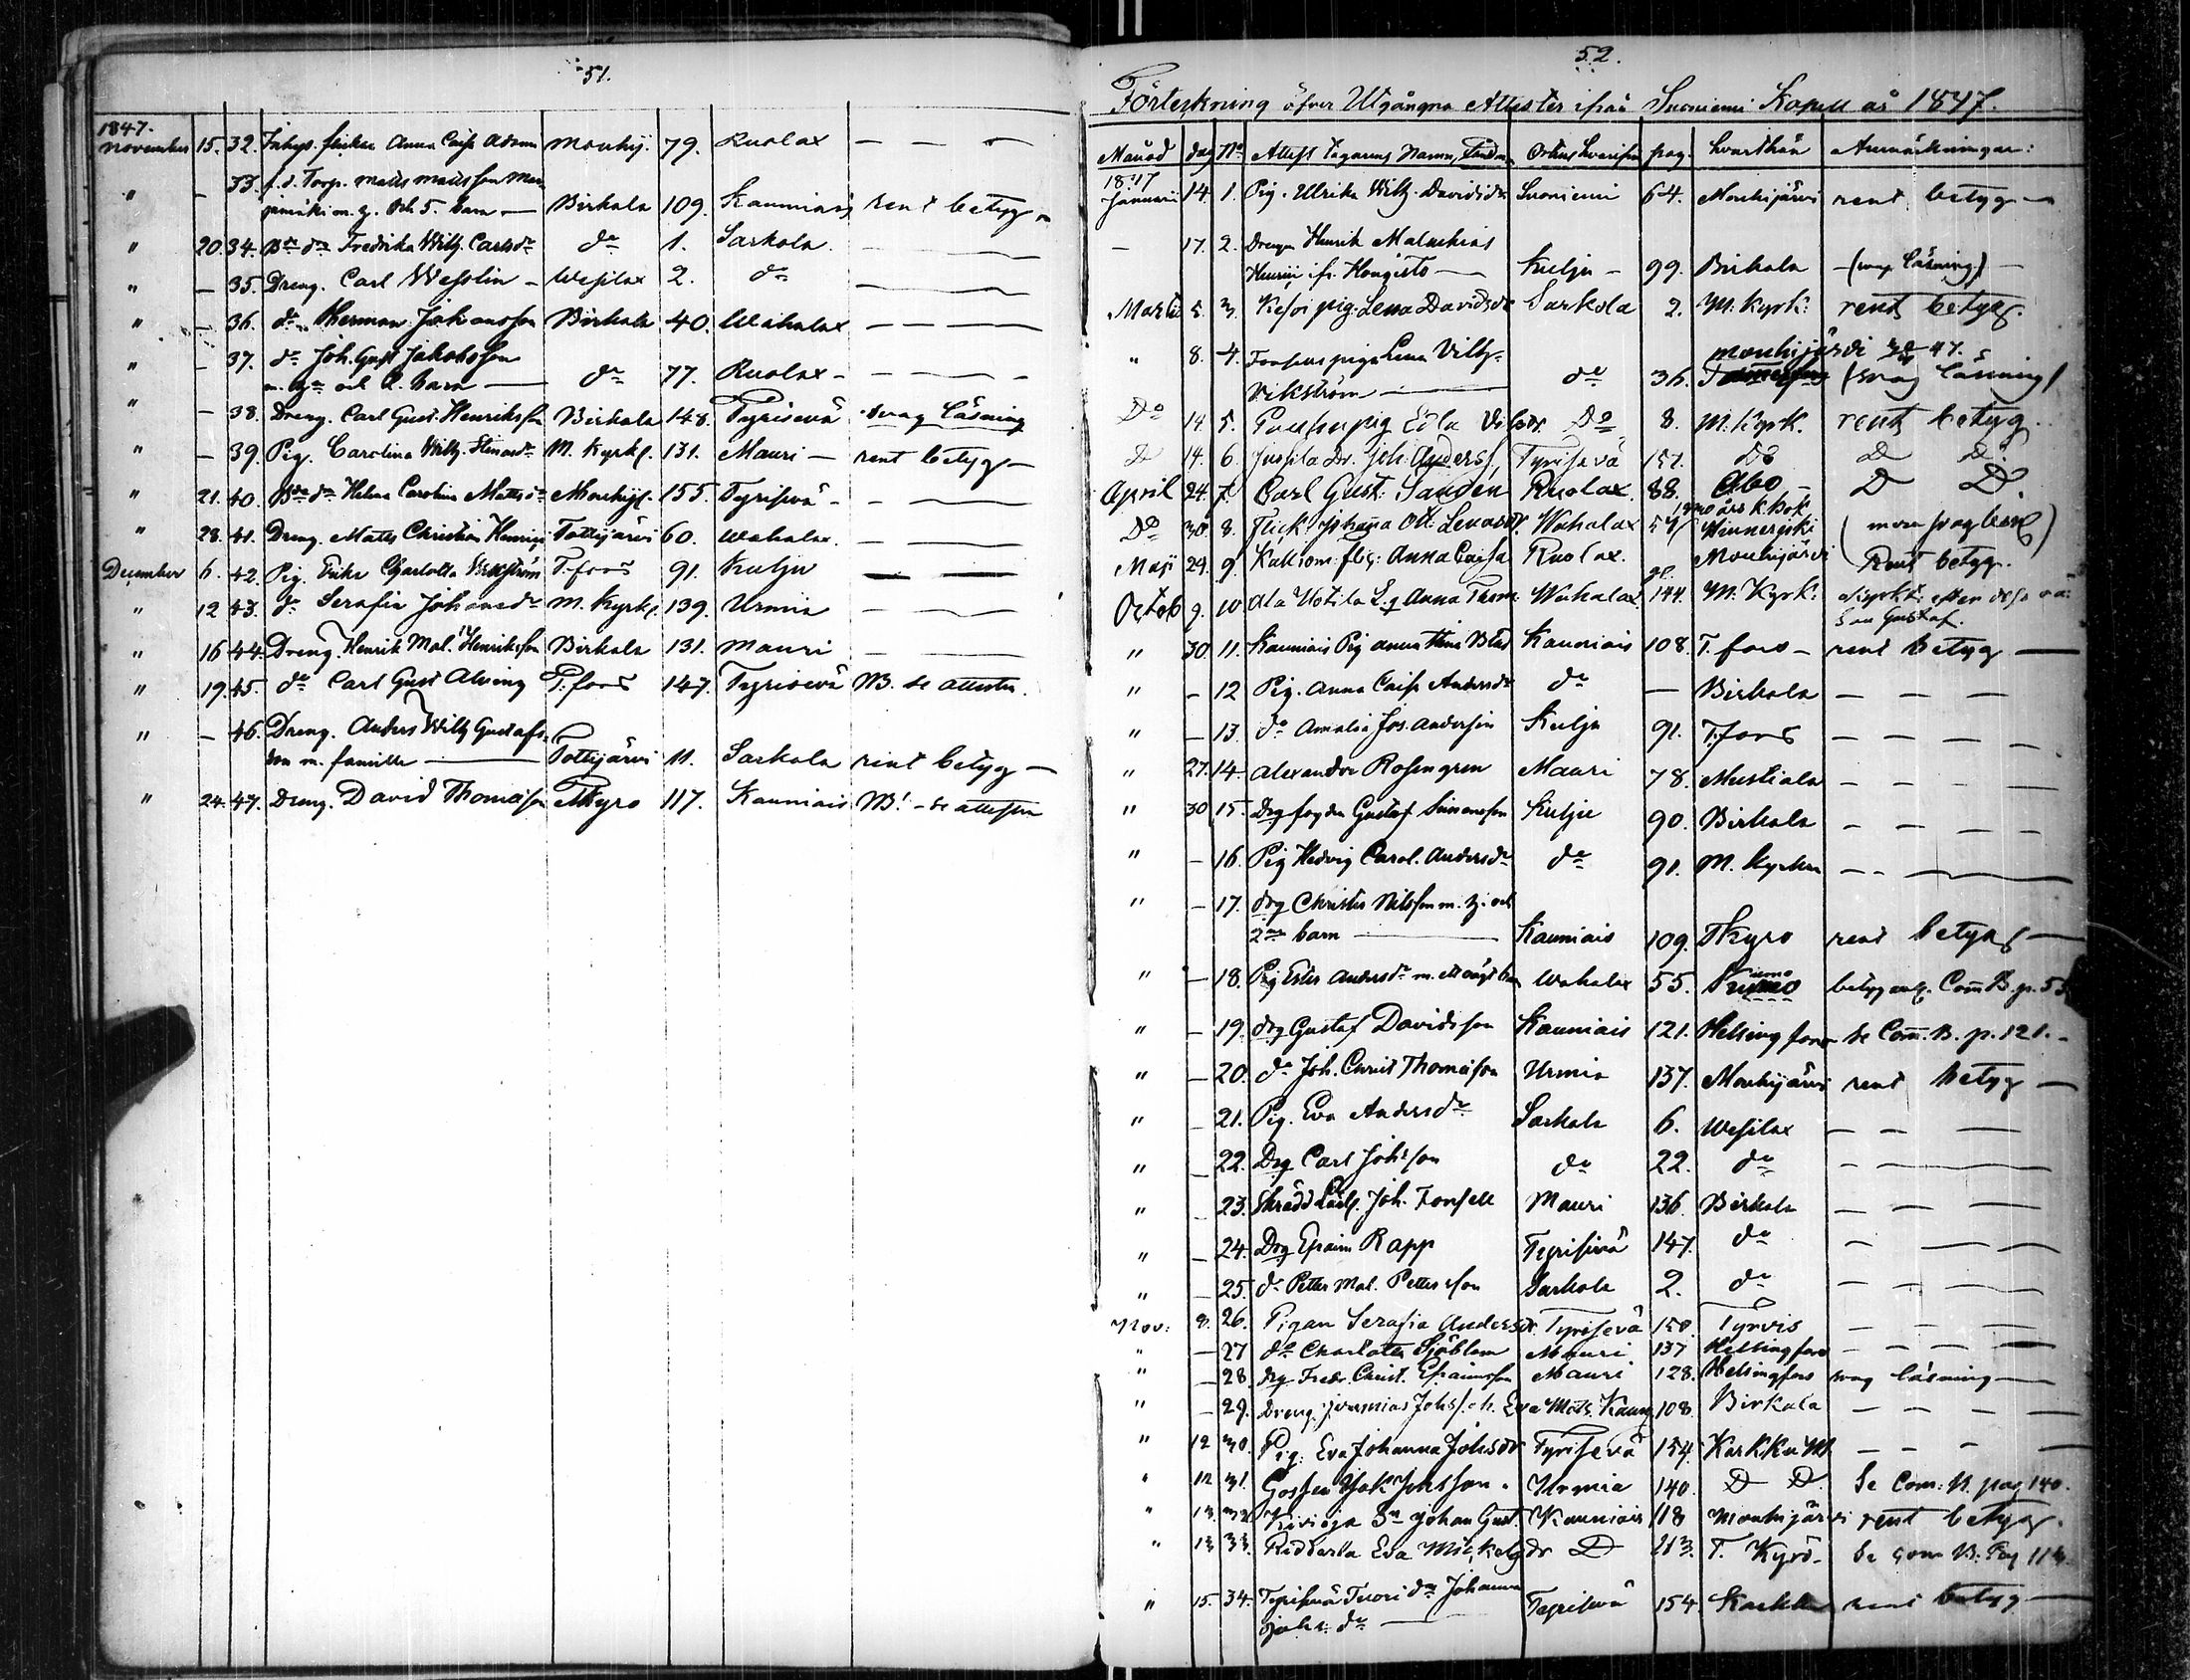 51.
1847.
November 15. 32. Inhys. flickan Anna Caisa Adams Mouhij. 79. Ruolax — — —
" — 33. f. d. Torp. Matts Mattsson
m. h. och 5. barn — Birkala 109. Kauniais rent betyg
" 20. 34. Fredrika Wilh. Carlsdr do 1. Sarkola — —
" — 35. Dreng. Carl Wesslin — Wesilax 2. do —
" — 36. do Herman Johansson Birkala 40. Wahalax — — —
" — 37. do Joh. Gust. Jakobsson
m. och 2. barn — do 77. Ruolax — — —
" — 38. Dreng. Carl Gust. Henriksson Birkala 148. Tyrisevä svag läsning
" — 39. Pig. Carolina Wilh. M. Kyrk. 131. Mauri — rent betyg —
" 21. 40. Helena Carolina Mattsdr Mouhij. 155. Tyrisevä — — —
" 28. 41. Dreng. Matts Christian Tottijärvi 60. Wahalax. — —
December 6. 42. Pig. Erika Charlotta T.fors 91. Kulju — — —
" 12 43. do Serafia Johansdr M. Kyrk. 139. Urmia — — —
" 16 44. Dreng Henrik Mal. Henriksson Birkala 131. Mauri — — —
" 19. 45. do Carl Gust Alving T.fors 147. Tyrisevä NB. se attesten.
" — 46. Dreng. Anders Wilh Gustafs-
son m. famille — Tottijärvi 11. Sarkola rent betyg —
" 24. 47. Dreng. David Thomasson TKyro 117. Kauniais NB! — se attesten
52.
Förteckning öfver Utgångna Attester ifrån Suoniemi Kapell år 1847.
Månad dag No Attest tagarens Namn, Orten hvarifrån pag. hvarthän Anmärkningar:
1847
Januari 14. 1. Pig. Ulrika Wilh. Davidsdr Suoniemi 64. Mouhijärvi rent betyg —
— 17. 2. Drengen Henrik Malachias
ifr. Hongisto — Kulju — 99. Birkala — (svag läsning) —
Martii 5. 3. pig. Lena Davidsdr Sarkola 2. M. Kyrk: rent betyg.
" 8. 4. piga Lena Vilh. Mouhijärvi 47.
Vikström — do 36. (svag läsning)
Do 14. 5. pig Do 8. M. Kyrk. rent betyg.
D 14. 6. Dr. Joh. Anders. Tyrisevä 151. do D D
April 24. 7. Carl Gust: Sanden Ruolax. 88. Åbo — D D.
Do 30. 8. Flick. Johanna Ott. Wahalax 57 års k.bok
(men svag)
Maji 29. 9. flic: Anna Caisa Ruolax. Mouhijärvi Rent betyg.
Octob 9. 10 Ala Uotila Anna Thom Wahalax 144. M. Kyrk:
son Gustaf.
" 30. 11. Kauniais Pig Anna Kauniais 108. T.fors — rent betyg —
" — 12 Pig. Anna Caisa Andersdr do — Birkala — — —
" — 13. do Amalia Jos. Andersin Kulju 91. T.fors — — — —
" 27. 14 Alexander Rosengren Mauri 78. Mustiala — — — —
" 30 15. Drg Gustaf Kulju 90. Birkala — — — —
" — 16. Pig Hedvig Carol. Andersdr do 91. M. Kyrkan — — — —
" — 17. drg Christer Nilsson m. h. och
2ne barn — Kauniais 109. TKyro rent betyg —
" — 18. Pig Ester Andersdr m. Wahalax 55. betyg Com B. p. 55
" — 19. drg Gustaf Davidsson Kauniais 121. Helsingfors se Com. B. p. 121. —
" — 20. do Joh. Christ Thomasson Urmia 137. Mouhijärvi rent betyg —
" — 21. Pig. Eva Andersdr Sarkola 6. Wesilax — — —
" — 22. Drg Carl Johsson do 22. do — — —
" — 23. Joh. Forsell Mauri 136. Birkala — — —
" — 24. Drg Efraim Rapp Tyrisevä 147. do — — —
" — 25. do Petter Mal. Pettersson Sarkola 2. do — — —
Nov: 8. 26. Pigan Serafia Andersdr. Tyrisevä 150. Tyrvis — — —
" — 27 do Charlotta Sjöblom Mauri 137 Helsingfors — — — —
" — 28. drg Fredr. Christ. Efraimsson Mauri 128. Helsingfors svag läsning —
" — 29. Dreng. Jeremias Johs. o. h. Eva Matts. Kaun. 108. Birkala — — — —
" 12 30. Pig. Eva Johanna Johsdr Tyrisevä 154. Karkku M. — — — —
" 12 31. Gossen Isak Johsson. Urmia 140. D D. Se Com: B. pag 140.
" 13. 32. Kivioja Johan Gust. Kauniais 118 Mouhijärvi rent betyg.
" 13 33. Ridberla Eva Mickelsdr D 113. T. Kyrö. Se Com B: Pag 113.
" 15. 34. Tyrisevä Tuori Johanna
Johs: dr — Tyrisevä 154 Karkku rent betyg —